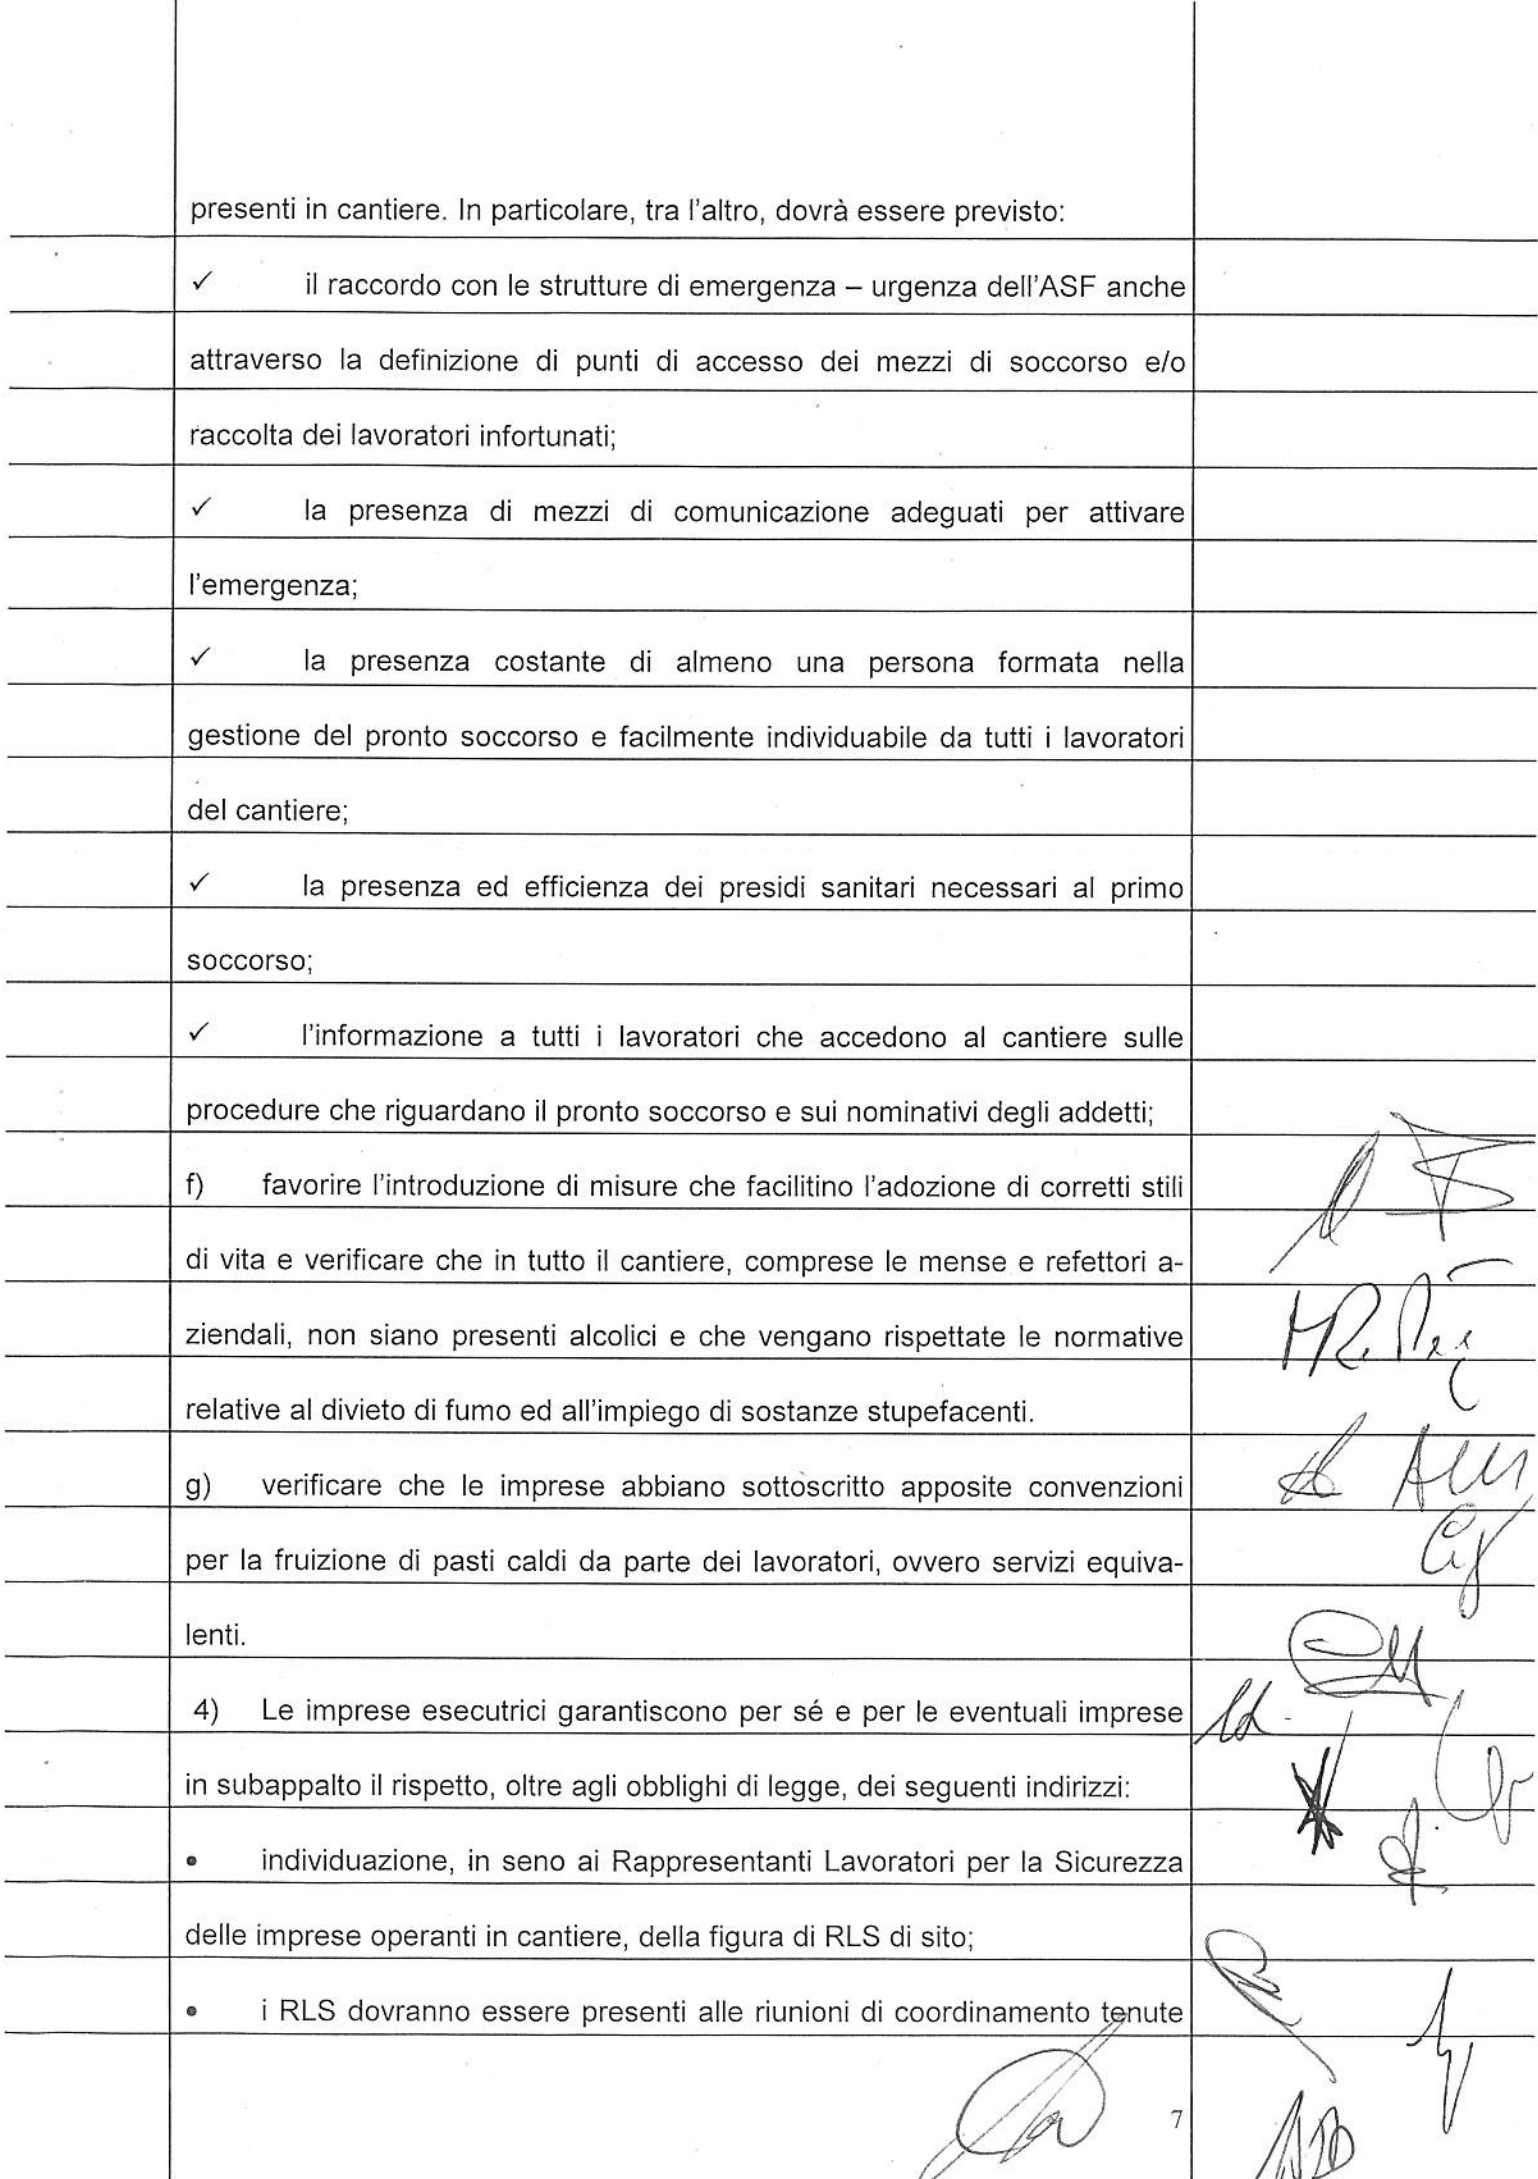 presenti in cantiere. In particolare, tra l'altro, dovrà essere previsto:
✓ il raccordo con le strutture di emergenza – urgenza dell'ASF anche
attraverso la definizione di punti di accesso dei mezzi di soccorso e/o
raccolta dei lavoratori infortunati;
✓ la presenza di mezzi di comunicazione adeguati per attivare
l'emergenza;
✓ la presenza costante di almeno una persona formata nella
gestione del pronto soccorso e facilmente individuabile da tutti i lavoratori
del cantiere;
✓ la presenza ed efficienza dei presidi sanitari necessari al primo
soccorso;
✓ l'informazione a tutti i lavoratori che accedono al cantiere sulle
procedure che riguardano il pronto soccorso e sui nominativi degli addetti;
f) favorire l'introduzione di misure che facilitino l'adozione di corretti stili
di vita e verificare che in tutto il cantiere, comprese le mense e refettori a-
ziendali, non siano presenti alcolici e che vengano rispettate le normative
relative al divieto di fumo ed all'impiego di sostanze stupefacenti.
g) verificare che le imprese abbiano sottoscritto apposite convenzioni
per la fruizione di pasti caldi da parte dei lavoratori, ovvero servizi equiva-
lenti.
4) Le imprese esecutrici garantiscono per sé e per le eventuali imprese
in subappalto il rispetto, oltre agli obblighi di legge, dei seguenti indirizzi:
• individuazione, in seno ai Rappresentanti Lavoratori per la Sicurezza
delle imprese operanti in cantiere, della figura di RLS di sito;
• i RLS dovranno essere presenti alle riunioni di coordinamento tenute
7